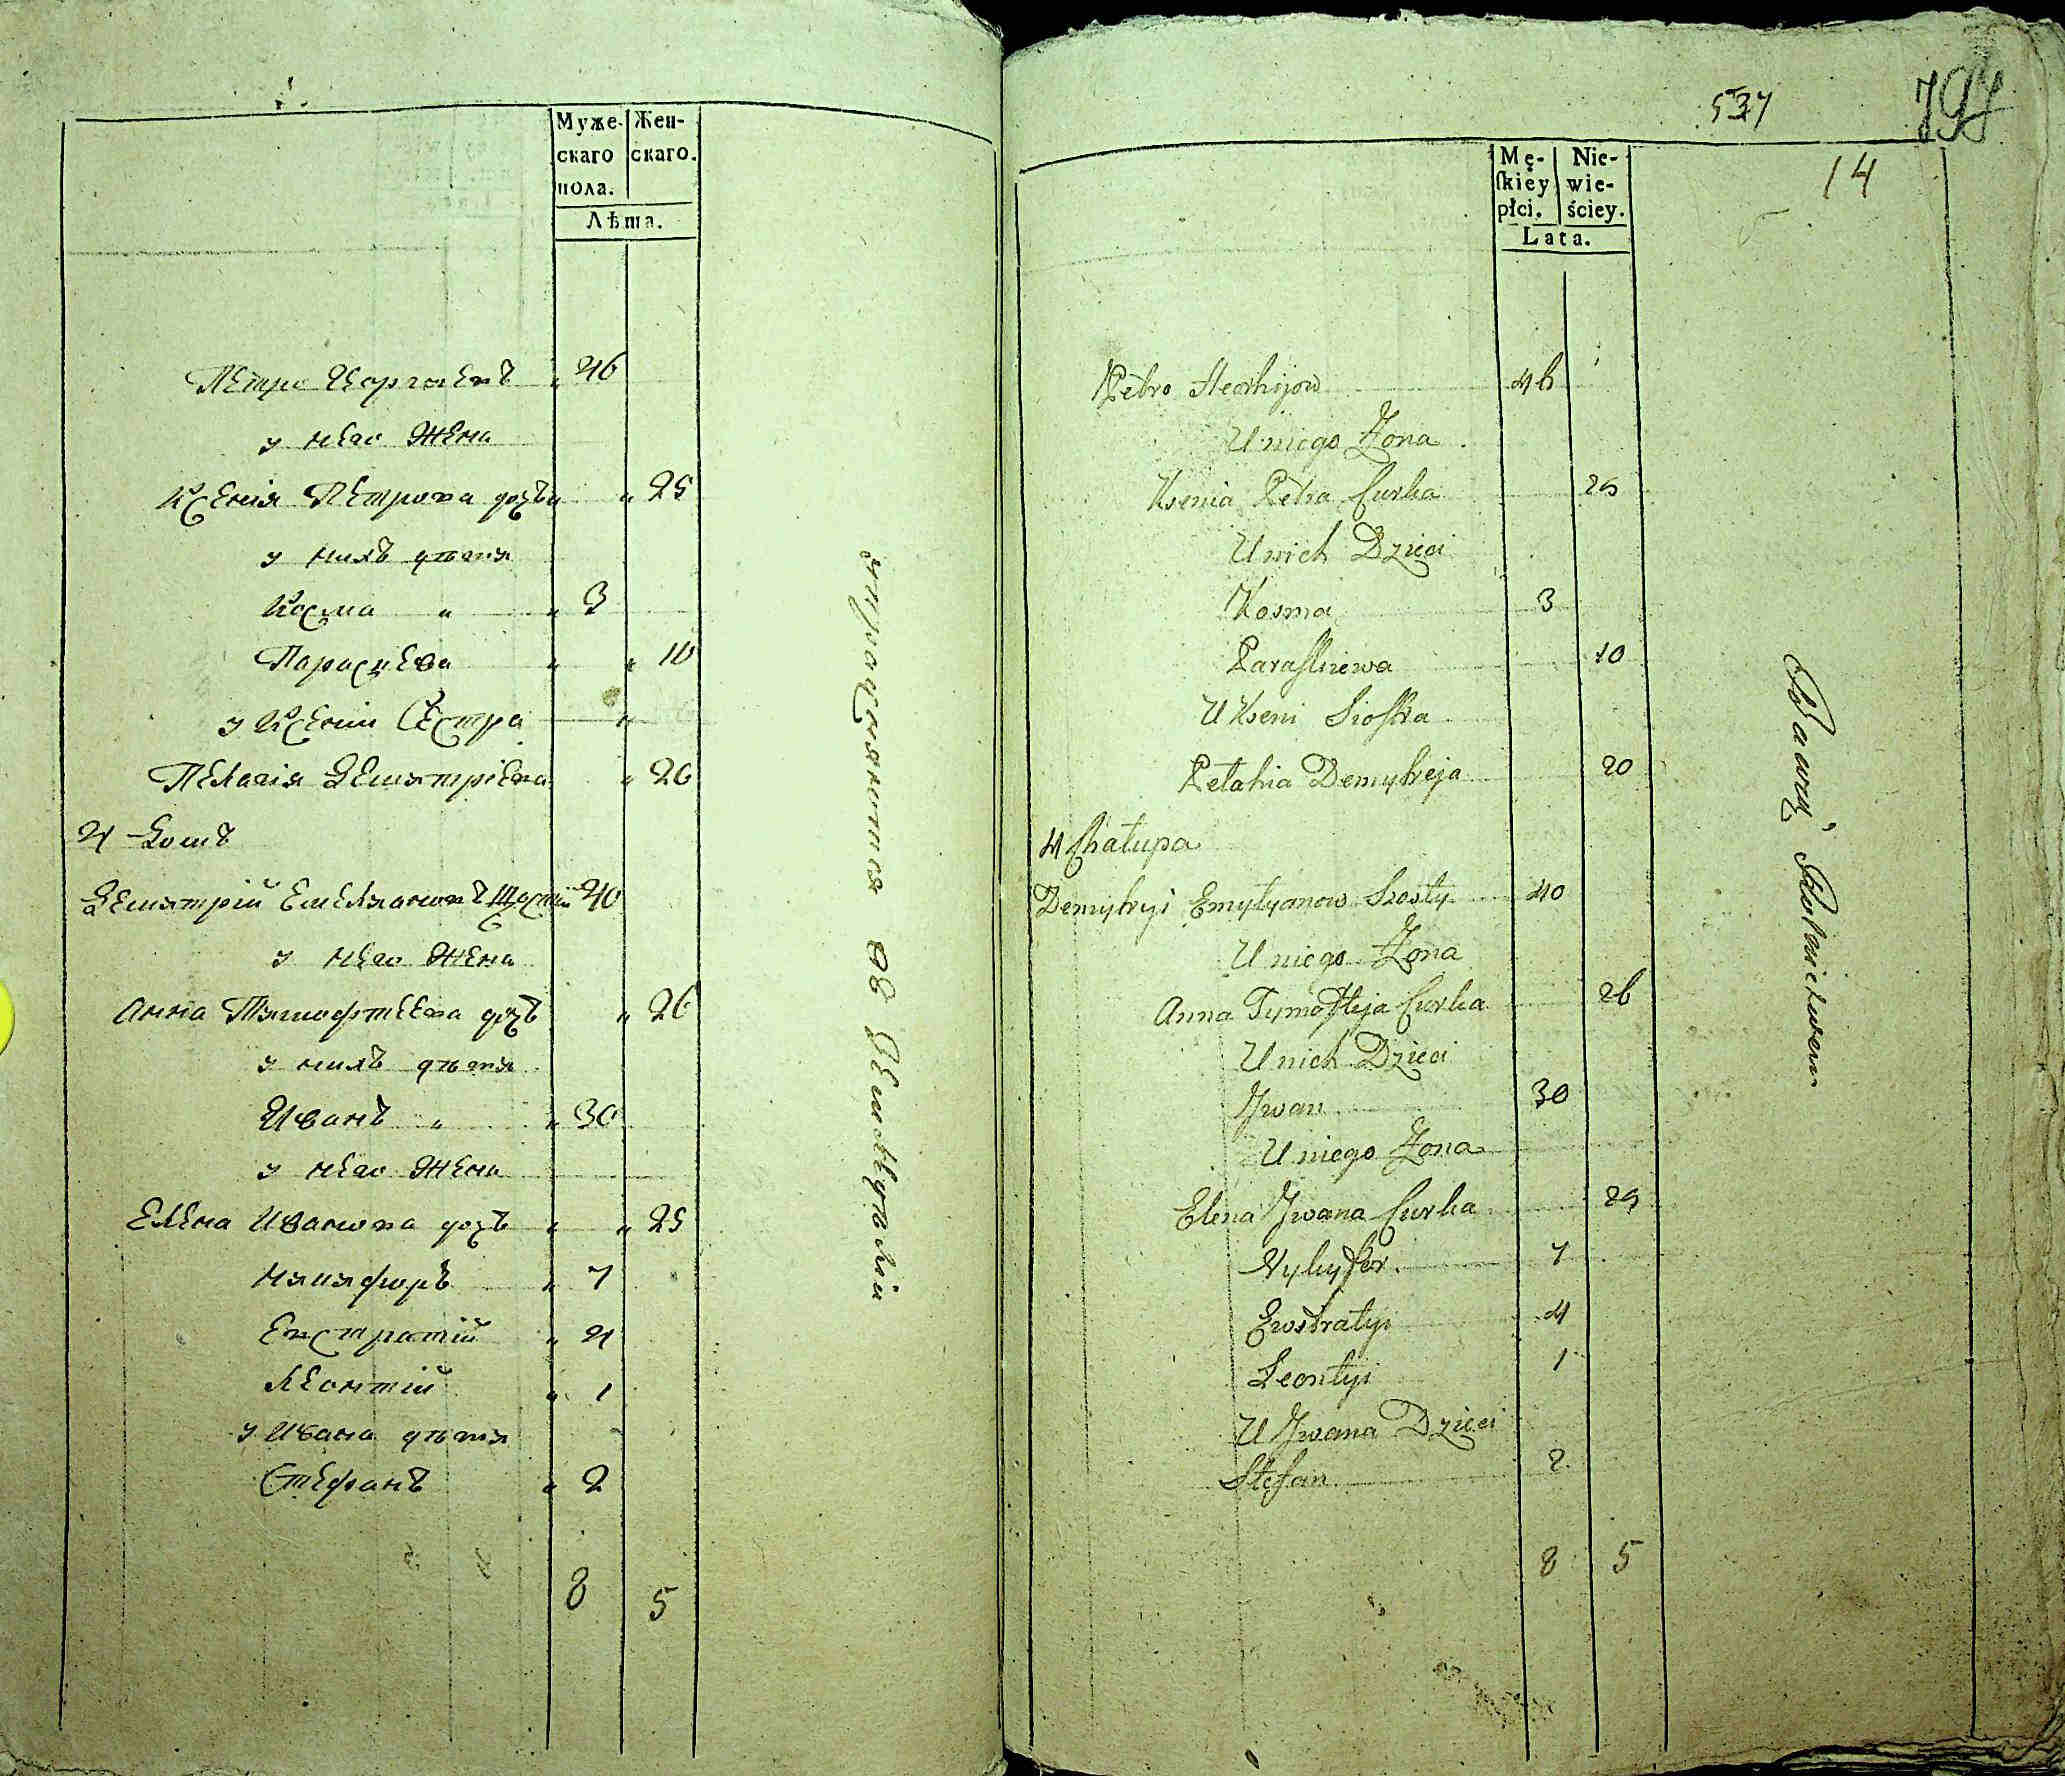 Муже-
скаго
пола.
Жен-
скаго.
Лѣта.
Петро Георгіевъ " 46
у него Жена
Ксенія Петрова дочь " 25
у нихъ дѣти
Косма " " 3
Параскева " " 10
у Ксеніи Сестра "
Пелагія Демитріева " 20
4 Домъ
Демитрій Емеляновъ Шостій 40
у него Жена
Анна Тимофтеева дочь " 26
у нихъ дѣти
Иванъ " " 30
у него Жена
Елена Иванова дочь " " 25
Никифоръ " 7
Евстратій " 4
Леонтій " 1
у Ивана дѣти
Стефанъ " 2
8 5
упражняются въ Земледѣліи
537
797
14
Mę-
ſkiey
płci.
Nie-
wie-
ściey.
Lata.
Petro Heorhijow 46
U niego Żona
Ksenia Petra Curka 25
U nich Dzieci
Kosma 3
Paraſkiewa 10
U Kseni Sioſtra
Pelahia Demytreja 20
4 Chałupa
Demytryi Emylyanow Szosty 40
U niego Żona
Anna Tymofteja Curka 26
U nich Dzieci
Jwan 30
U niego Żona
Elena Jwana Curka 25
Nykyfor 7
Ewstratyi 4
Leontyi 1
U Jwana Dzieci
Stefan 2
8 5
Bawią Rolnictwem